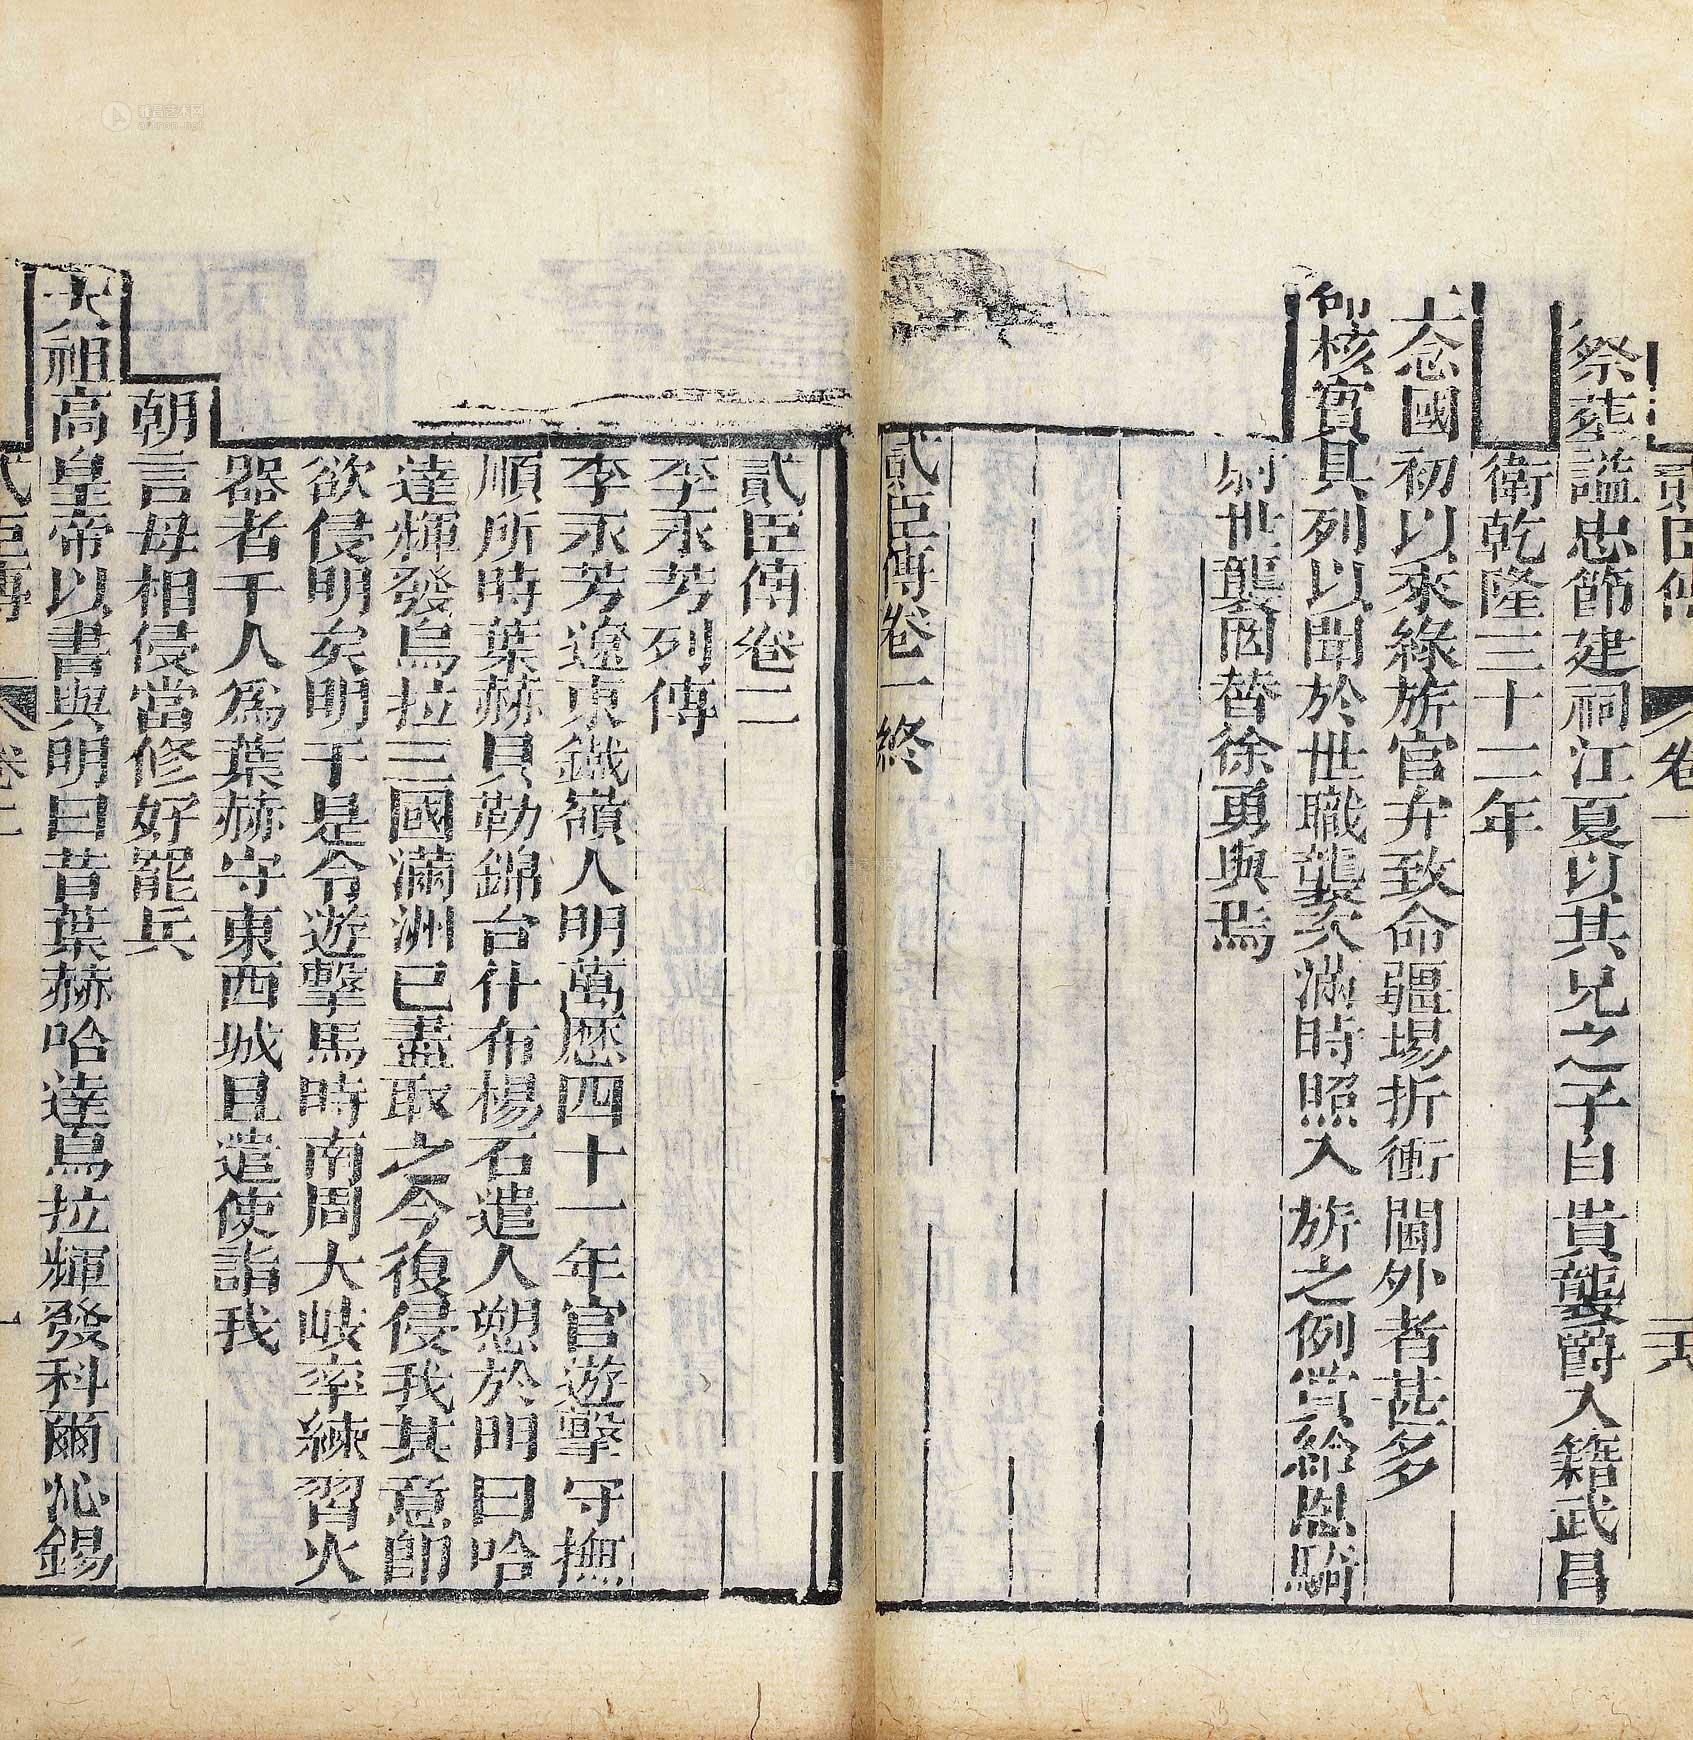 貳臣傳 卷一
祭葬謚忠節建祠江夏以其兄之子自貴襲爵入籍武昌
衛乾隆三十二年
上念國初以來綠旂官弁致命疆埸折衝閫外者甚多
命核實具列以聞於世職襲次滿時照入旂之例賞給恩騎
尉世襲罔替徐勇與焉
貳臣傳卷一終
貳臣傳卷二
李永芳列傳
李永芳遼東鐵嶺人明萬歷四十一年官遊擊守撫
順所時葉赫貝勒錦台什布楊石遣人愬於明曰哈
達輝發烏拉三國滿洲已盡取之今復侵我其意卽
欲侵明矣明于是令遊擊馬時南周大岐率練習火
器者千人為葉赫守東西城且遣使詣我
朝言毋相侵當修好罷兵
太祖高皇帝以書與明曰昔葉赫哈達烏拉輝發科爾沁錫
貳臣傳 卷二 一
雅昌艺术网
artron.net